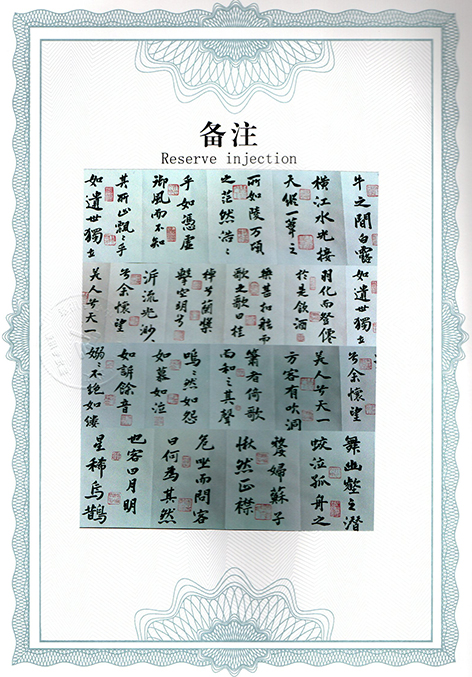 备注
Reserve injection
牛之間白露
横江水光接
天縱一葦之
所如陵万頃
之茫然浩〻
乎如憑虚
御風而不知
其所止飄〻乎
如遺世獨立
如遺世獨立
羽化而登僊
於是飲酒
樂甚扣舷而
歌之歌曰桂
棹兮蘭槳
擊空明兮
泝流光渺
兮余懷望
美人兮天一
兮余懷望
美人兮天一
方客有吹洞
簫者倚歌
而和之其聲
嗚〻然如怨
如慕如泣
如訴餘音
嫋〻不絶如縷
舞幽壑之潜
蛟泣孤舟之
嫠婦蘇子
愀然正襟
危坐而問客
曰何為其然
也客曰月明
星稀烏鵲